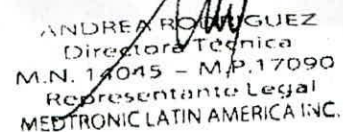 ANDREA RODRIGUEZ
Directora Técnica
M.N. 14045 - M.P.17090
Representante Legal
MEDTRONIC LATIN AMERICA INC.